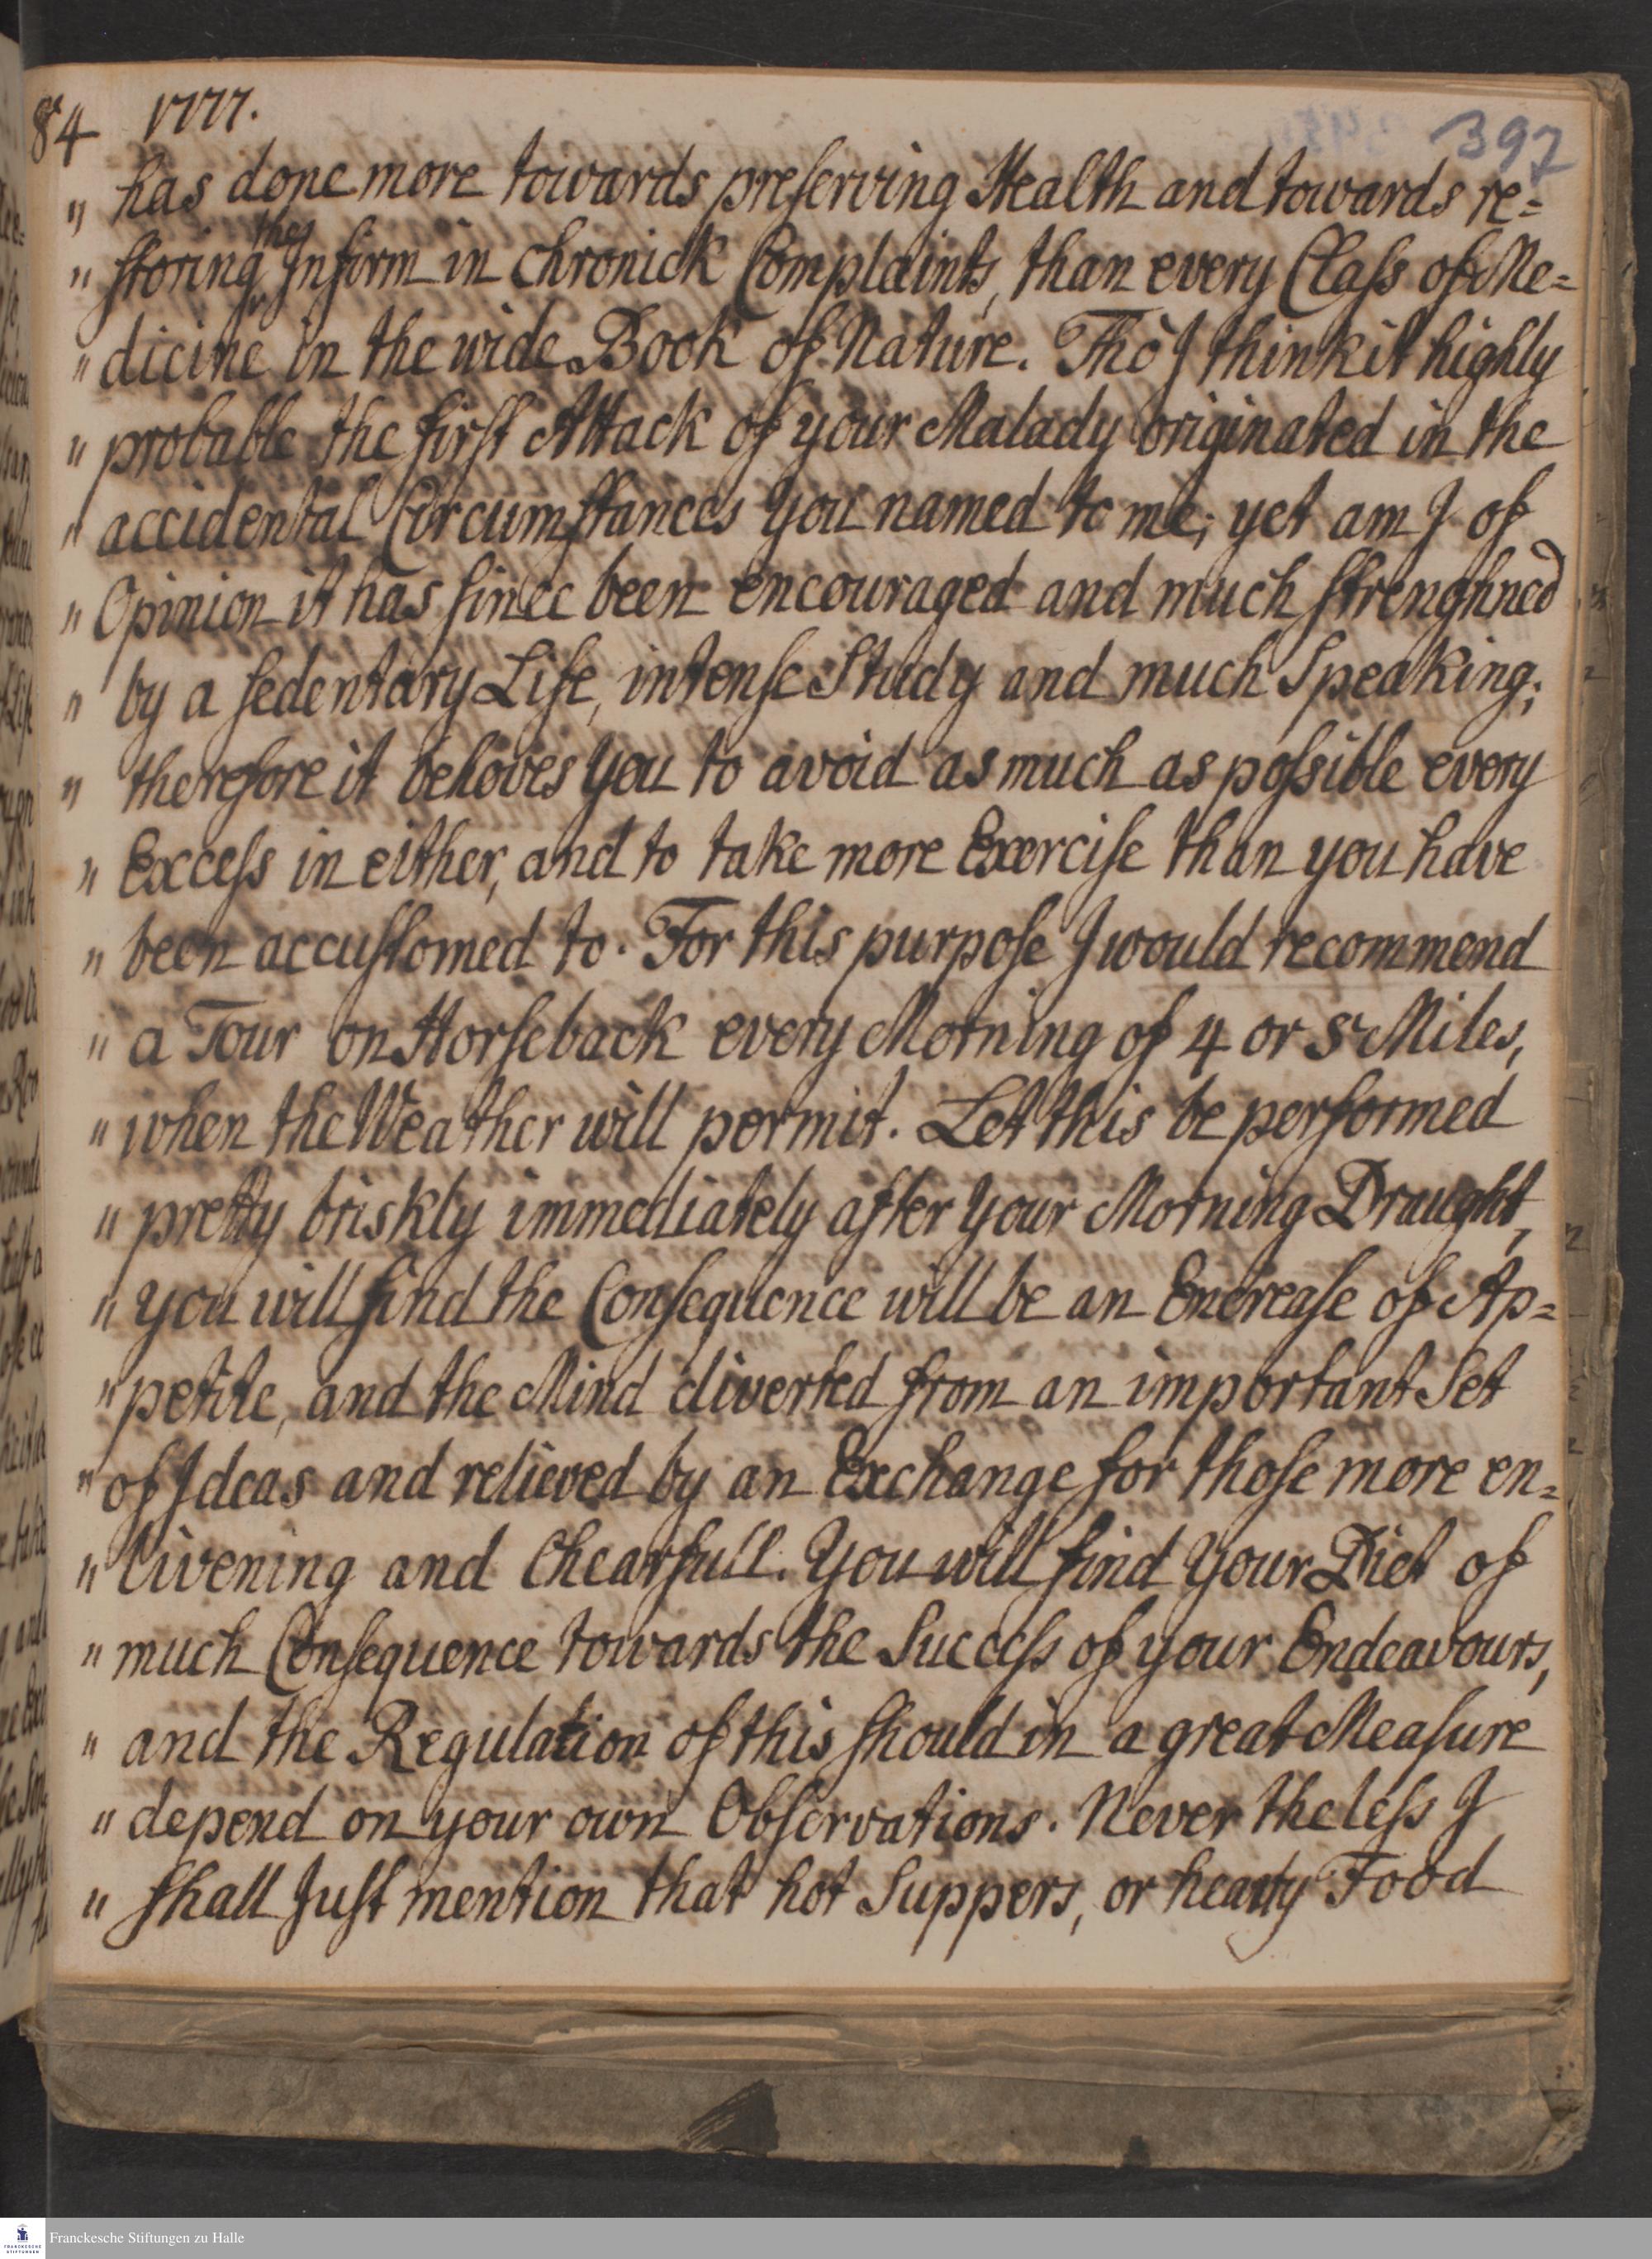 84 1777.
397
„ has done more towards preſerving Health and towards re=
the
„ ſtoring Infirm in chronick Complaints, than every Claſs of Me=
„ dicine in the wide Book of Nature. Tho' I think it highly
„ probable the firſt Attack of your Malady originated in the
„ accidental Circumſtances you named to me; yet am I of
„ Opinion it has ſince been encouraged and much ſtrenghned
„ by a ſedentary Life, intenſe Study and much Speaking;
„ therefore it behoves you to avoid as much as poſsible every
„ Exceſs in either, and to take more Exerciſe than you have
„ been accuſtomed to. For this purpoſe I would recommend
„ a Tour on Horſeback every Morning of 4 or 8 Miles,
„ when the Weather will permit. Let this be performed
„ pretty briskly immediately after your Morning Draught,
„ you will find the Conſequence will be an Encreaſe of Ap=
„ petite, and the Mind diverted from an important Set
„ of Ideas and relieved by an Exchange for thoſe more en=
„ livening and Chearfull. You will find your Diet of
„ much Conſequence towards the Succeſs of your Endeavours,
„ and the Regulation of this ſhould in a great Meaſure
„ depend on your own Obſervations. Never theleſs I
„ ſhall Juſt mention that hot Suppers, or hearty Food
Franckesche Stiftungen zu Halle